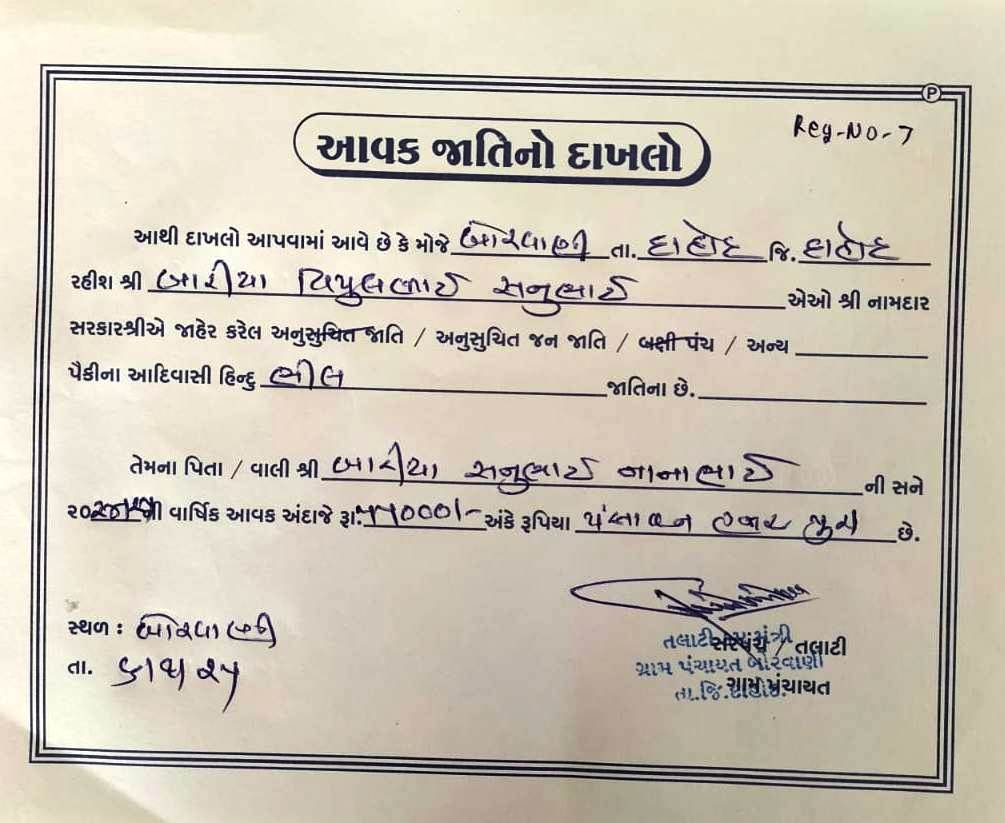 Reg-No-7
આવક જાતિનો દાખલો
આથી દાખલો આપવામાં આવે છે કે મોજે બોરવાણી તા. દાહોદ જિ. દાહોદ
રહીશ શ્રી બારીયા વિપુલભાઈ સનુભાઈ એઓ શ્રી નામદાર
સરકારશ્રીએ જાહેર કરેલ અનુસુચિત જાતિ / અનુસુચિત જન જાતિ / બક્ષી પંચ / અન્ય
પૈકીના આદિવાસી હિન્દુ ભીલ જાતિના છે.
તેમના પિતા / વાલી શ્રી બારીયા સનુભાઈ નાનાભાઈ ની સને
ની વાર્ષિક આવક અંદાજે રૂા. ૫૫૦૦૦/- અંકે રૂપિયા પંચાવન હજાર પુરા છે.
સ્થળ : બોરવાણી
તલાટી કમ મંત્રી
સરપંચ / તલાટી
તા.
ગ્રામ પંચાયત બોરવાણી
તા.જિ.દાહોદ.
ગ્રામ પંચાયત